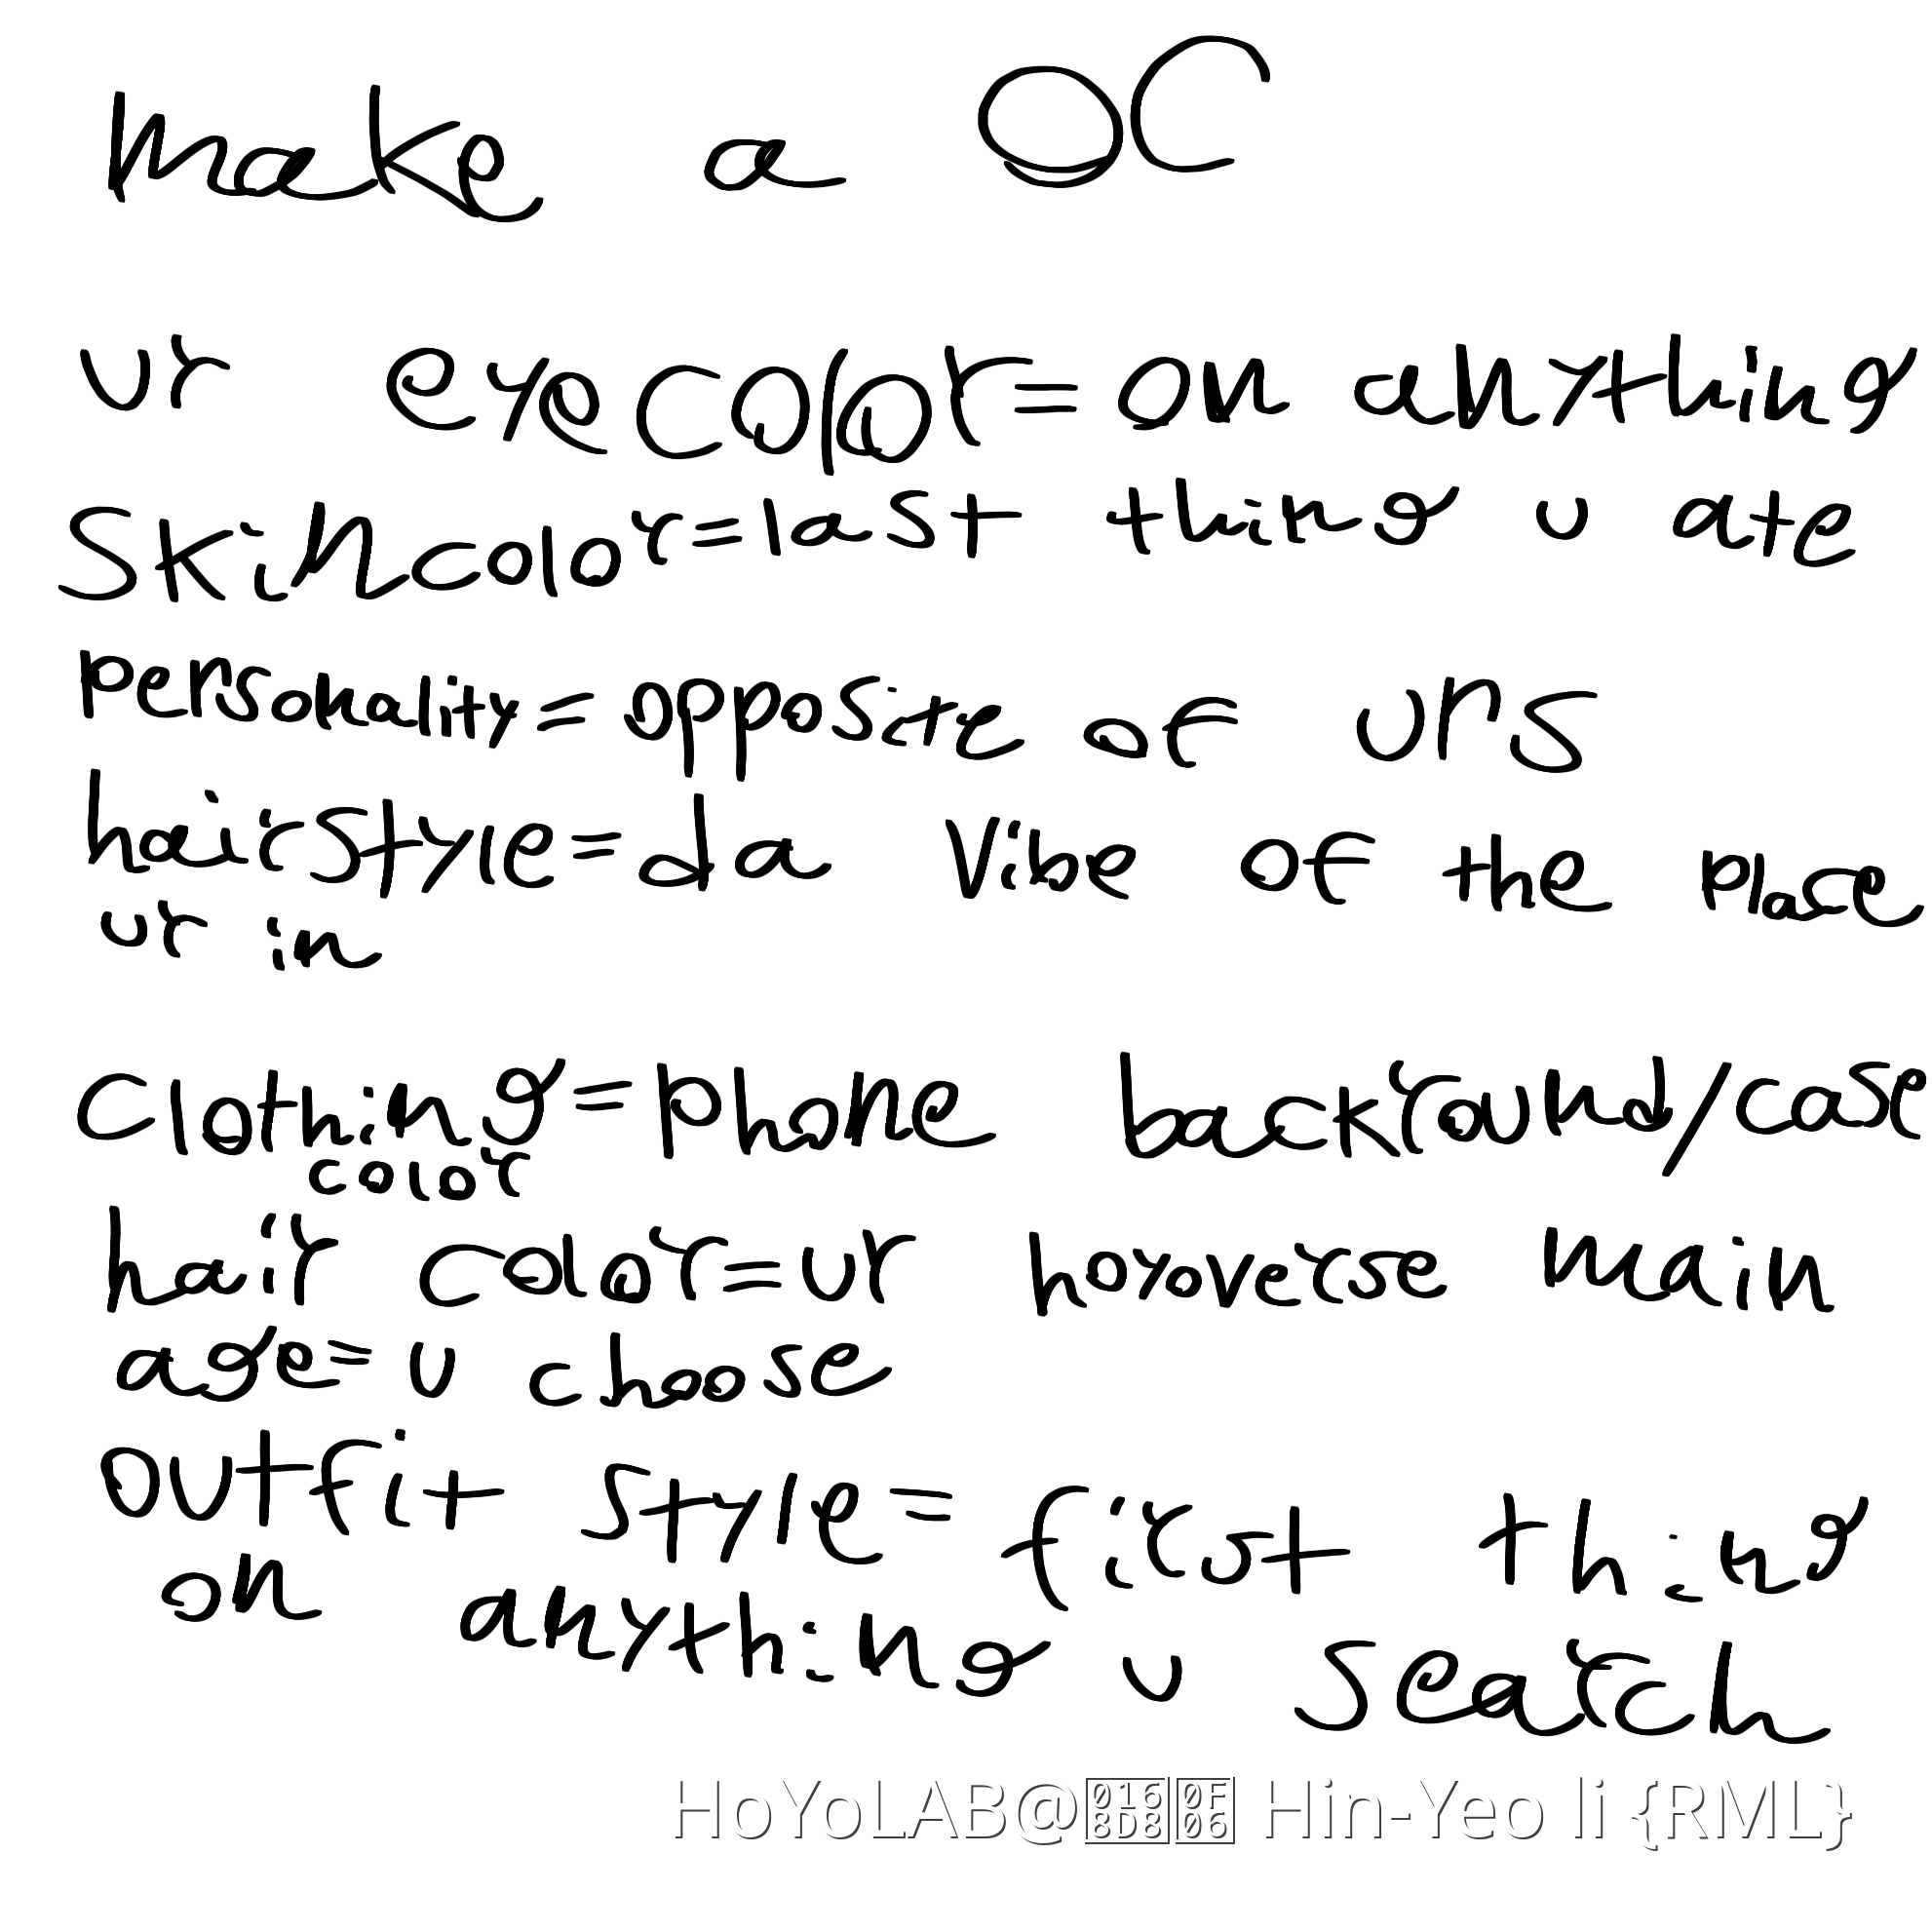 make a OC
ur eyecolor=on anything
skincolor=last thing u ate
personality=opposite of urs
hairstyle=da vibe of the place
ur in
clothing=phone backround/case
color
hair color=ur hoyoverse main
age=u choose
outfit style=first thing
on anything u search
HoYoLAB@ Hin-Yeo li {RML}